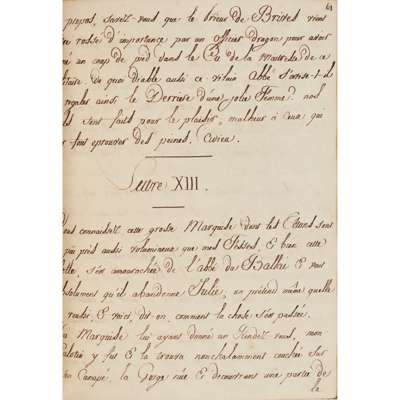 61
propos, savez-vous que le Prieur de Brivet vient
rosse d'importance par un officier Dragon pour avoir
un coup de pied dans le Cû de la Maitresse de ce
de quoi Diable aussi ce vilain Abbé s'avise-t-il
regaler ainsi le Derriere d'une jolie Femme? nos
sont faits pour le plaisir, malheur à Ceux qui
font eprouver des peines. Adieu.
Lettre XIII.
connaissez cette grosse Marquise dont les
qui pres aussi volumineux que mes & bien cette
s'en amourachée de l'abbé du Balkié & veut
absolument qu'il abandonne Julie, on prétend même quelle
rendre, & voici, dit on, comment la chose s'en passée.
La Marquise lui ayant donné un Rendez vous, mon
y fut & la trouva nonchalamment couchée sur
un Canapé. la Gorge nüe & decouvrant une partie de
la